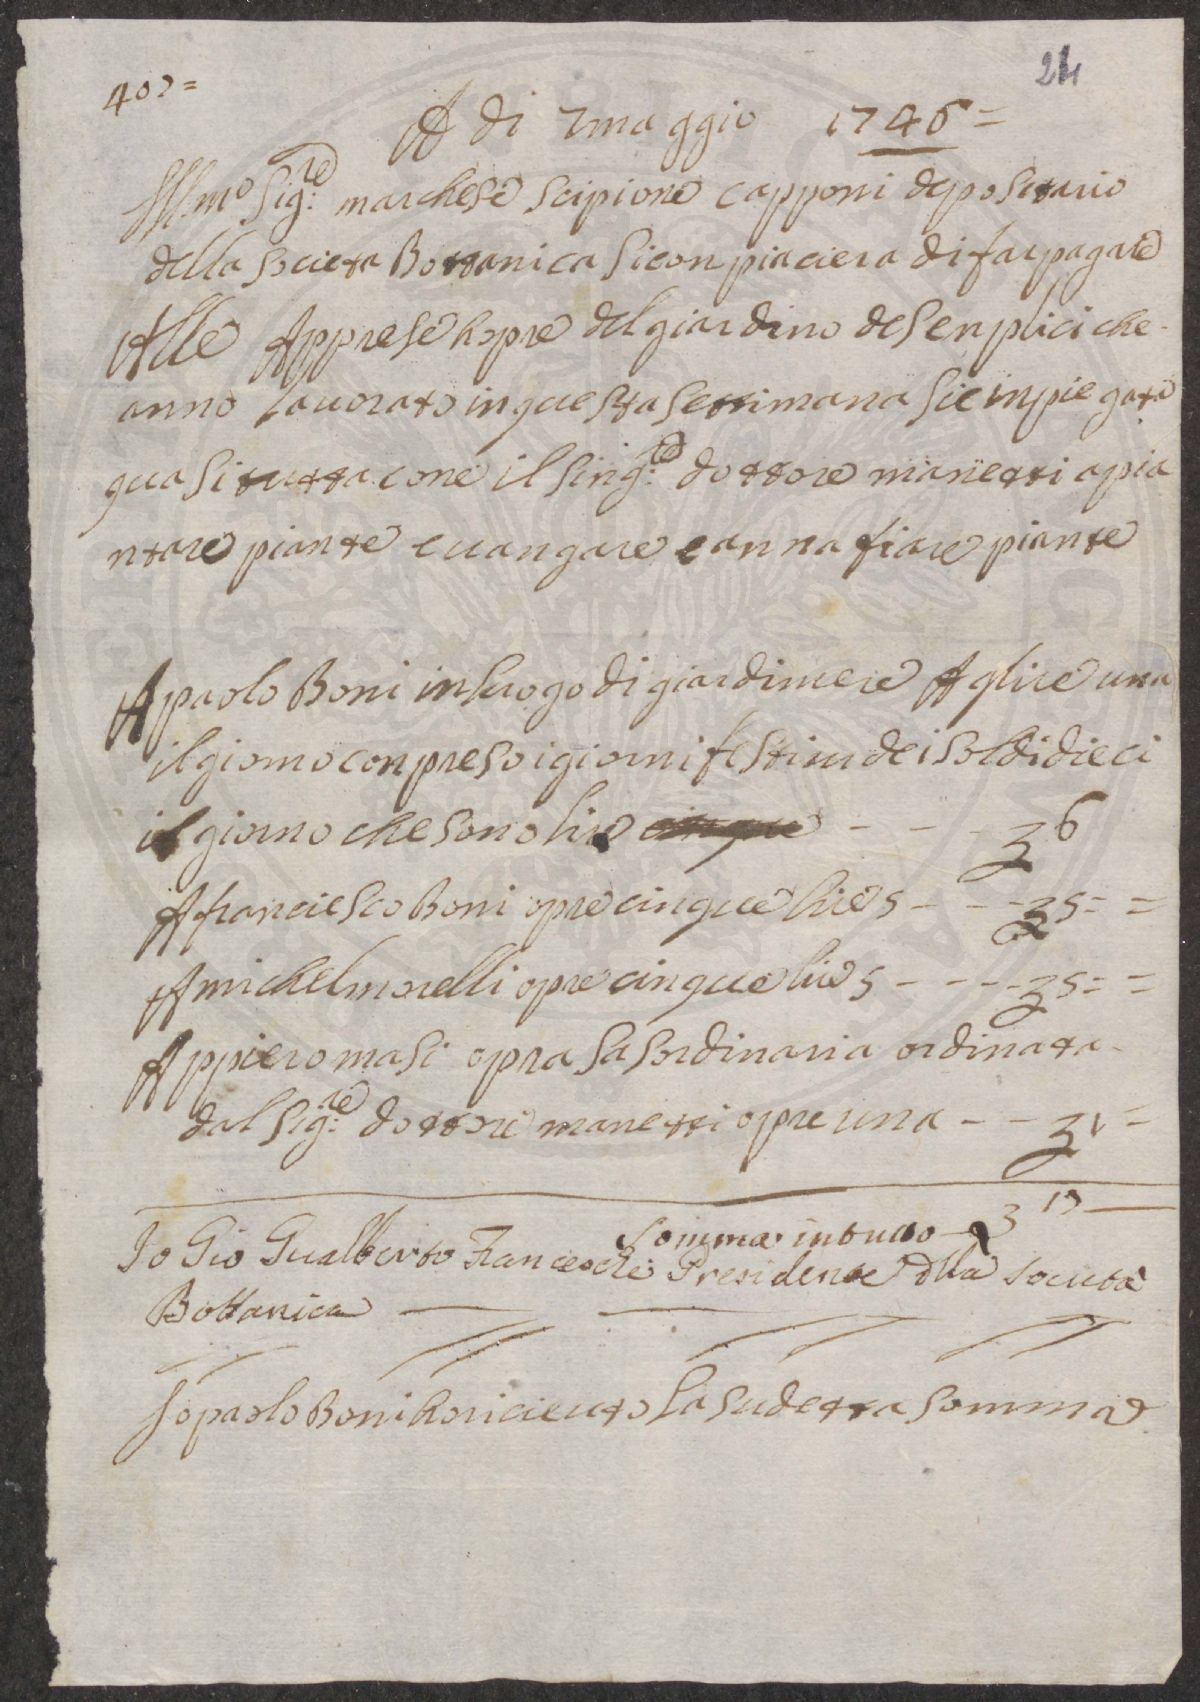 407=
24
A di 7 maggio 1746=
Ill:mo Sig:re marchese Scipione Capponi depositario
della Societa Bottanica Siconpiaciera di far pagare
Alle Apprese hopre del giardino de Senplici che
anno lavorato in questa Settimana Sie inpiegata
quasi tutta cone il Sing:re dottore manetti a pia
ntare piante e vangare e anna fiare piante
A paolo Boni in luogo di giardiniere A glire una
il giorno conpreso i giorni festivi dei soldi dieci
il giorno che sono lire cinque - - - 6
A franciesco Boni opre cinque lire 5 - - - 5= =
A michel morelli opre cinque lire 5 - - - - 5= =
A ppiero masi opra Sasordinaria ordinata
dal Sig:re dottore manetti opre una - - - 1 =
Somma in tutto - 17
Io Gio Gualberto Franceschi Presidente dlla Società
Bottanica
Io paolo Boni ho riceuto la sudetta somma